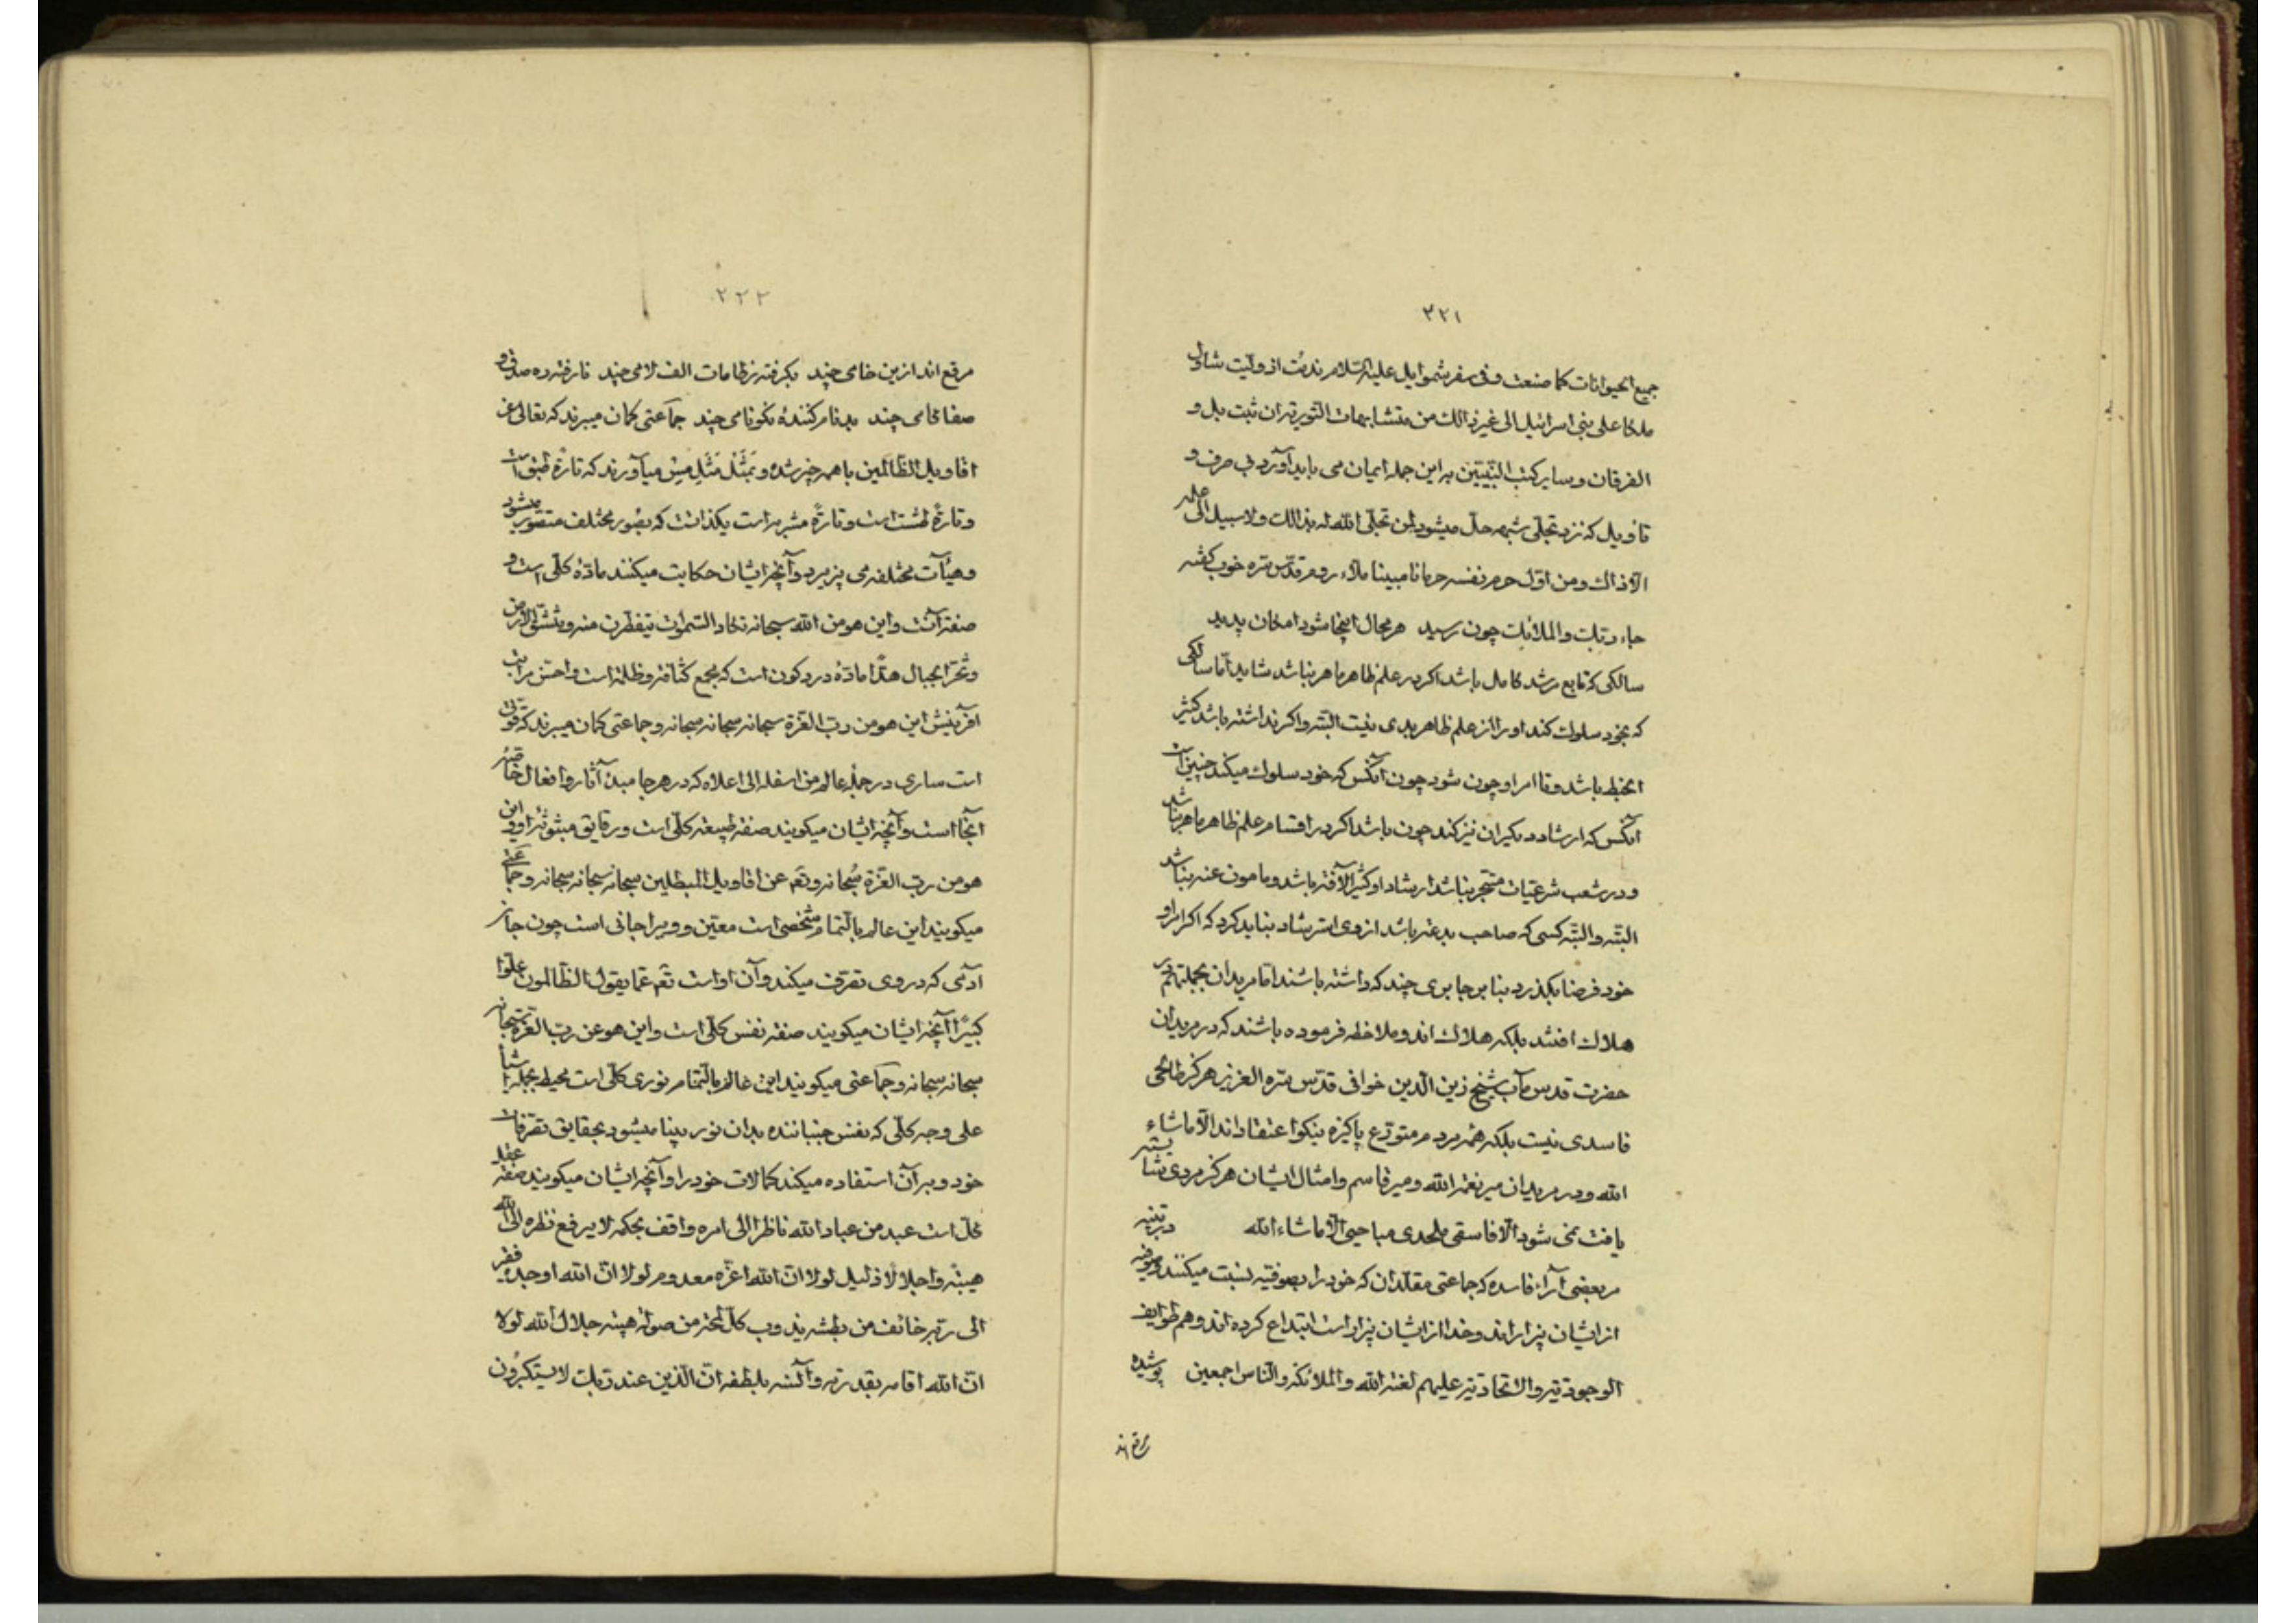 ۳۲۱
جمیع الحیوانات کما صنعت و فی سفر شموایل علیه السلام ندمت اذ ولیت شاول
ملکا علی بنی اسرائیل الی غیر ذالک من متشابهات التوریة ان ثبت بل و
الفرقان و سایر کتب النبیین به این جمله ایمان می باید آورد بی حرف و
تأویل که نزد تجلی شبهه حل میشود لمن تجلی الله له بذالک و لا سبیل الی علمه
الا ذاک و من اوّل حرم نفسه حرمانا مبینا ملاء روم قدّس سره خوب گفته
جاء ربک والملائک چون رسید هر محال اینجا شود امکان پدید
سالکی که تابع مرشد کامل باشد اکر در علم ظاهر ماهر نباشد شاید اما سالکی
که بخود سلوک کند او را از علم ظاهر بدی نیست البته و اکر نداشته باشد کثیر
الخبط باشد و فا امر او چون شود چون آنکس که خود سلوک میکند چنین است
آنکس که ارشاد دیکران نیز کند چون باشد اکر در اقسام علم ظاهر ماهر نباشد
و در شعب شرعیات متبحر نباشد ارشاد او کثیر الآفة باشد و مامون عنه نباشد
البته و البته کسی که صاحب بدعة باشد از وی استرشاد نباید کرد که اکر امر او
خود فرضا بکذرد بنا بر جابری چند که داشته باشند اما مریدان بجملتهم در
هلاک افتند بلکه هلاک اند و ملاحظه فرموده باشند که در مریدان
حضرت قدس مآب شیخ زین الدین خوافی قدّس سره العزیز هرکز طالحی
فاسدی نیست بلکه همه مردم متورّع پاکیزه نیکو اعتقاد اند الّا ماشاء
الله و در مریدان میر نعمة الله و میر قاسم و امثال ایشان هرکز مردی متشبّه
یافت نمی شود الّا فاسقی ملحدی مباحیی الّا ماشاء الله در تنبیه
بر بعضی آراء فاسده که جماعتی مقلّدان که خود را بصوفیّه نسبت میکنند و صوفیه
از ایشان بیزار اند و خدا از ایشان بیزار است ابتداع کرده اند و هم طوایف
الوجودیّة و الاتحادیّة علیهم لعنة الله و الملائکة و الناس اجمعین پوشیده
مرقع اند
۲۲۲
مرقع اند ازین خامی چند بکرفته ز طامات الف لامی چند نارفته ره صدق و
صفا کامی چند بدنام کنندهٔ نکونامی چند جماعتی کمان میبرند که تعالی عن
اقاویل الظالمین با همه چیز شده و تمثّل مَثَل مِس میآورند که تارة طبق است
و تارة طشت است و تارة مشربه است یکذات که بصور مختلف متصور میشود
و هیآت مختلفه می پذیرد و آنچه ایشان حکایت میکنند مادّهٔ کلّی است و
صفة آنست و این هو من الله سبحانه تکاد السموات یتفطرن منه و تنشق الارض
و تخر الجبال هدًا مادّه درد کون است که مجمع کثافة و ظلمة است و اخسّ مراتب
آفرینش این هو من رب العزّة سبحانه سبحانه سبحانه و جماعتی کمان میبرند که قوتی
است ساری در جملهٔ عالم من اسفله الی اعلاه که در هر جا مبدء آثار و افعال خاصّهٔ
آنجا است و آنچه ایشان میکویند صفة طبیعة کلّی است و رقایق مبثوثهٔ او و این
هو من رب العزّة سُبحانه و تع عن اقاویل المبطلین سبحانه سبحانه سبحانه و جماعتی
میکویند این عالم بالتمام شخصی است معیّن و ویرا جانی است چون جان
آدمی که در وی تصرّف میکند و آن او است تع عمّا یقول الظالمون علوّا
کبیرًا آنچه ایشان میکویند صفة نفس کلّی است و این هو عن رب العزّة سبحانه
سبحانه سبحانه و جماعتی میکویند این عالم بالتمام نوری کلّی است محیط بجمله اشیا
علی وجه کلّی که نفس جنباننده بدان نور بینا میشود بحقایق تصرّفات
خود و بر آن استفاده میکند کمالات خود را و آنچه ایشان میکویند صفة عقل
کلّ است عبد من عباد الله ناظرا الی امره واقف بحکمه لا یرفع نظره الی الله
هیبةً و اجلالًا ذلیل لولا انّ الله اعزّه معدوم لولا انّ الله اوجده فقیر
الی ربّه خائف من بطشه یذوب کل لحظة من صولة هیبة جلال الله لولا
انّ الله اقامه بقدرته و آنسه بلطفه انّ الذین عند ربّک لا یستکبرون